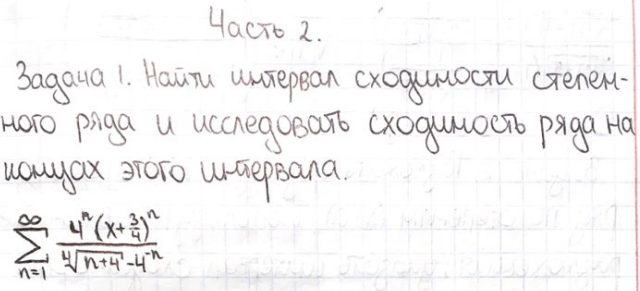 Часть 2.
Задача 1. Найти интервал сходимости степен-
ного ряда и исследовать сходимость ряда на
концах этого интервала.
∑_{n=1}^{∞} \frac{4^n (x+\frac{3}{4})^n}{\sqrt[4]{n+4} - 4^{-n}}